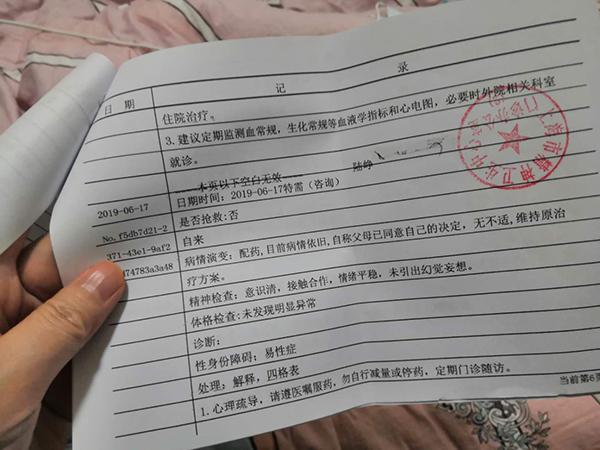 日 期
记 录
住院治疗。
3. 建议定期监测血常规，生化常规等血液学指标和心电图，必要时外院相关科室
就诊。
本页以下空白无效
陆峥
2019-06-17
日期时间：2019-06-17特需（咨询）
No. f5db7d21-2
是否抢救：否
371-43e1-9af2
自来
74783a3a48
病情演变：配药，目前病情依旧，自称父母已同意自己的决定，无不适，维持原治
疗方案。
精神检查：意识清，接触合作，情绪平稳，未引出幻觉妄想。
体格检查：未发现明显异常
诊断：
性身份障碍：易性症
处理：解释，四格表
1. 心理疏导，请遵医嘱服药，勿自行减量或停药，定期门诊随访。
当前第6页